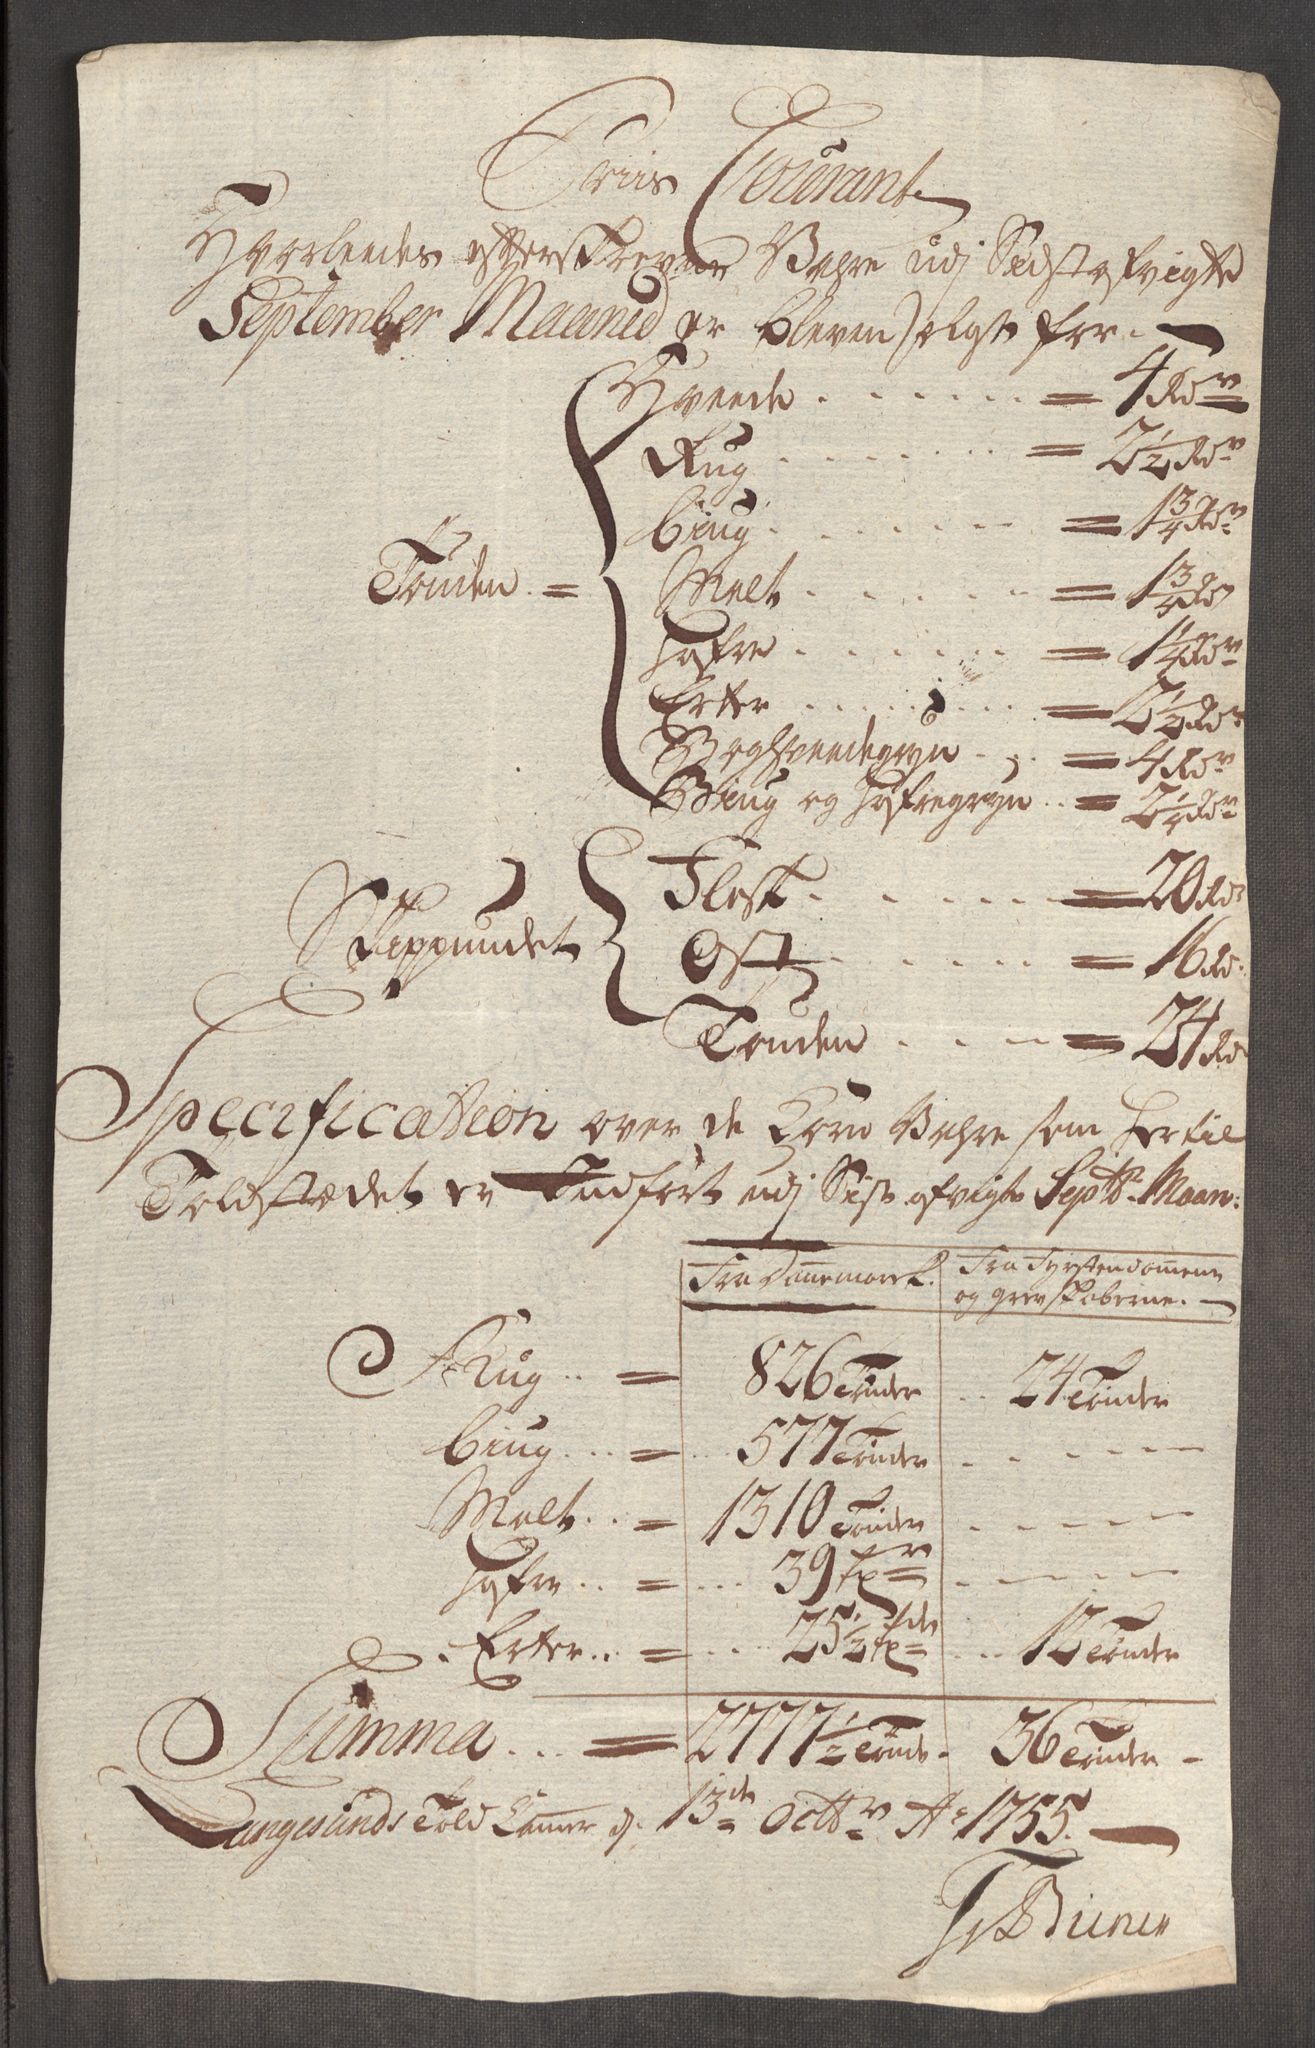 Priis Courant
Hvorleedes efterskrevne Vahre udj Sidst afvigte
September Maaned er bleven Solgt for
Hveede = 4 Rdr
Rug = 2 1/2 Rdr
Biug = 1 3/4 Rdr
Tønden = Malt = 1 3/4 Rd
Hafre = 1 1/4 Rdr
Erter = 2 1/2 Rdr
Boghveedegryn = 4 Rdr
Biug og Hafregryn = 2 1/4 Rdr
Flesk = 20 Rd
Skippundet Ost = 16 Rd
Tønden = 24 Rd
Specification over de Korn Vahre som hertil
Toldstædet er Indført udj Sist afvigte Septbr Maan:
Fra Dannemarck. Fra Fyrstendommene
og grevskaberne.
Rug = 826 Tønder 24 Tønder
Biug = 577 Tønder
Malt = 1310 Tønder
Hafre = 39 tr
Erter = 25 1/2 td 12 Tønder
Summa = 2777 1/2 Tønde 36 Tønder
Langesunds Told Kammer d. 13de Octbr Ao 1755.